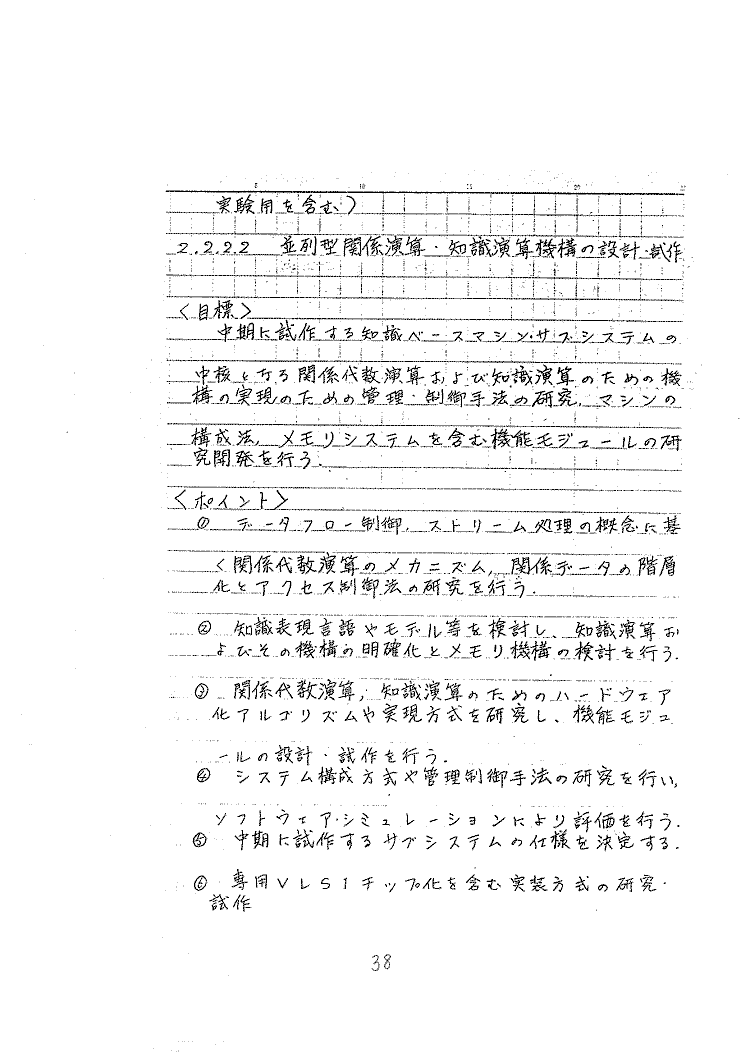 5 10 15 20 25
実験用を含む)
2.2.2.2 並列型関係演算・知識演算機構の設計・試作
〈目標〉
中期に試作する知識ベースマシン・サブシステムの
中核となる関係代数演算および知識演算のための機
構の実現のための管理・制御手法の研究,マシンの
構成法,メモリシステムを含む機能モジュールの研
究開発を行う.
〈ポイント〉
① データフロー制御,ストリーム処理の概念に基
く関係代数演算のメカニズム,関係データの階層
化とアクセス制御法の研究を行う.
② 知識表現言語やモデル等を検討し、知識演算お
よびその機構の明確化とメモリ機構の検討を行う.
③ 関係代数演算,知識演算のためのハードウェア
化アルゴリズムや実現方式を研究し、機能モジュ
ールの設計・試作を行う.
④ システム構成方式や管理制御手法の研究を行い,
ソフトウェア・シミュレーションにより評価を行う.
⑤ 中期に試作するサブシステムの仕様を決定する.
⑥ 専用VLSIチップ化を含む実装方式の研究・
試作
38